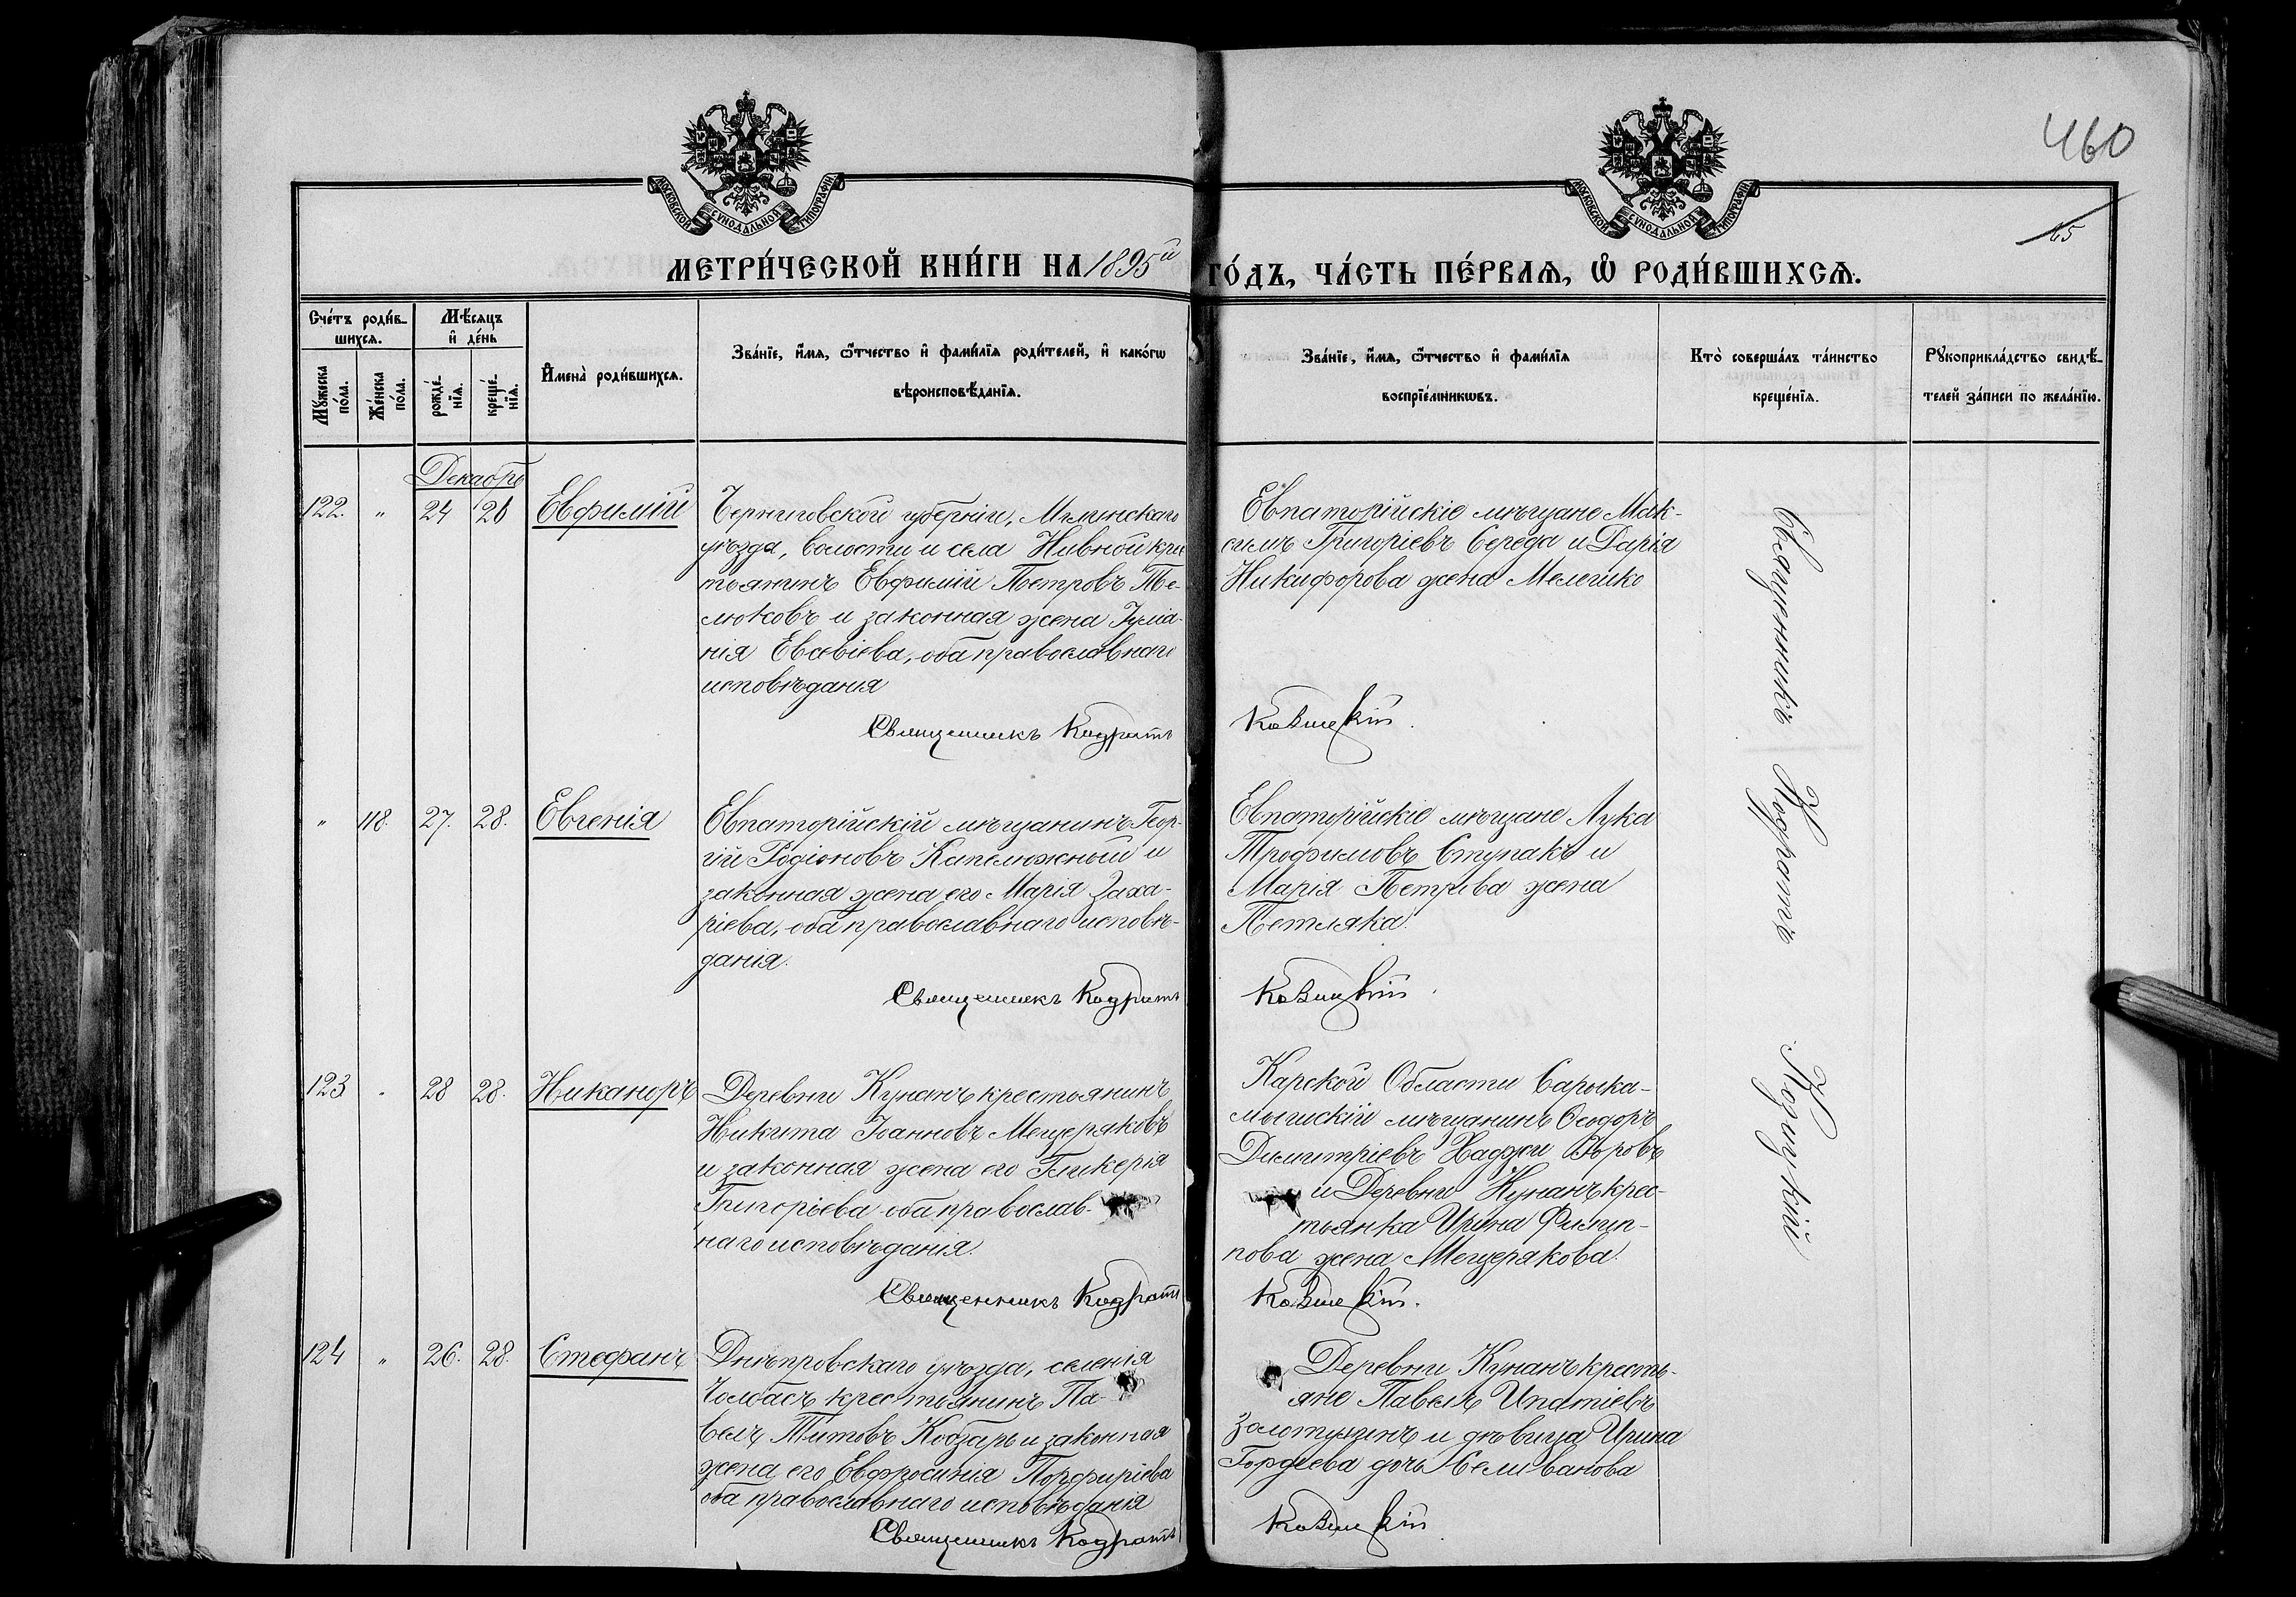 460
МОСКОВСКОЙ СѴНОДАЛЬНОЙ ТИПОГРАФІИ
МОСКОВСКОЙ СѴНОДАЛЬНОЙ ТИПОГРАФІИ
МЕТРИ́ЧЕСКОЙ КНИ́ГИ НА 1895й ГО́ДЪ, ЧА́СТЬ ПЕ́РВАѦ, Ѡ РОДИ́ВШИХСѦ.
Сче́тъ роди́в-
шихсѧ.
Мѹ́жеска по́ла.
Же́нска по́ла.
Мѣ́сѧцъ
и де́нь
рожде́-
нїѧ.
креще́-
нїѧ.
И҆мена̀ роди́вшихсѧ.
Зва́нїе, и҆́мѧ, ѻ҆́тчество и҆ фами́лїѧ роди́телей, и҆ како́гѡ
вѣроисповѣ́данїѧ.
Зва́нїе, и҆́мѧ, ѻ҆́тчество и҆ фами́лїѧ
воспрїе́мникѡвъ.
Кто̀ соверша́лъ та́инство
креще́нїѧ.
Рѹкоприкла́дство свидѣ́-
телей за́писи по жела́нїю.
Декабрь
122. " 24 26 Евфимій
Черниговской губерніи, Мглинскаго
уѣзда, волости и села Нивной крес
тьянинъ Евфимій Петровъ Те-
люковъ и законная жена Іулiа-
нія Евсевіева, оба православнаго
исповѣданія
Священникъ Кодратъ
Евпаторійскіе мѣщане Мак-
симъ Григоріевъ Середа и Дарія
Никифорова жена Мелешко
" 118. 27. 28. Евгенія
Евпаторійскій мѣщанинъ Геор-
гій Родіоновъ Капелюжный и
законная жена его Марія Заха-
ріева, оба православнаго исповѣ-
данія.
Священникъ Кодратъ
Евпаторійскіе мѣщане Лука
Трофимовъ Ступакъ и
Марія Петрова жена
Петляка.
123 " 28 28. Никаноръ
Деревни Кунанъ крестьянинъ
Никита Іоанновъ Мещеряковъ
и законная жена его Гликерія
Григорьева оба православ-
наго исповѣданія.
Священникъ Кодратъ
Карской Области Сарыка-
мышскій мѣщанинъ Ѳеодоръ
Димитріевъ Хаджи
и Деревни Кунанъ крес-
тьянка Ирина Филип-
пова жена Мещерякова.
124 " 26. 28. Стефанъ
Днѣпровскаго уѣзда, селенія
Чолбасъ крестьянинъ Па-
велъ Титовъ Кобзарь и законная
жена его Евфросинія Порфиріева
оба православнаго исповѣданія
Священникъ Кодратъ
Деревни Кунанъ кресть-
яне Павелъ Ипатіевъ
Золотухинъ и дѣвица Ирина
Гордѣева дочь Селиванова
Священникъ Кодратъ